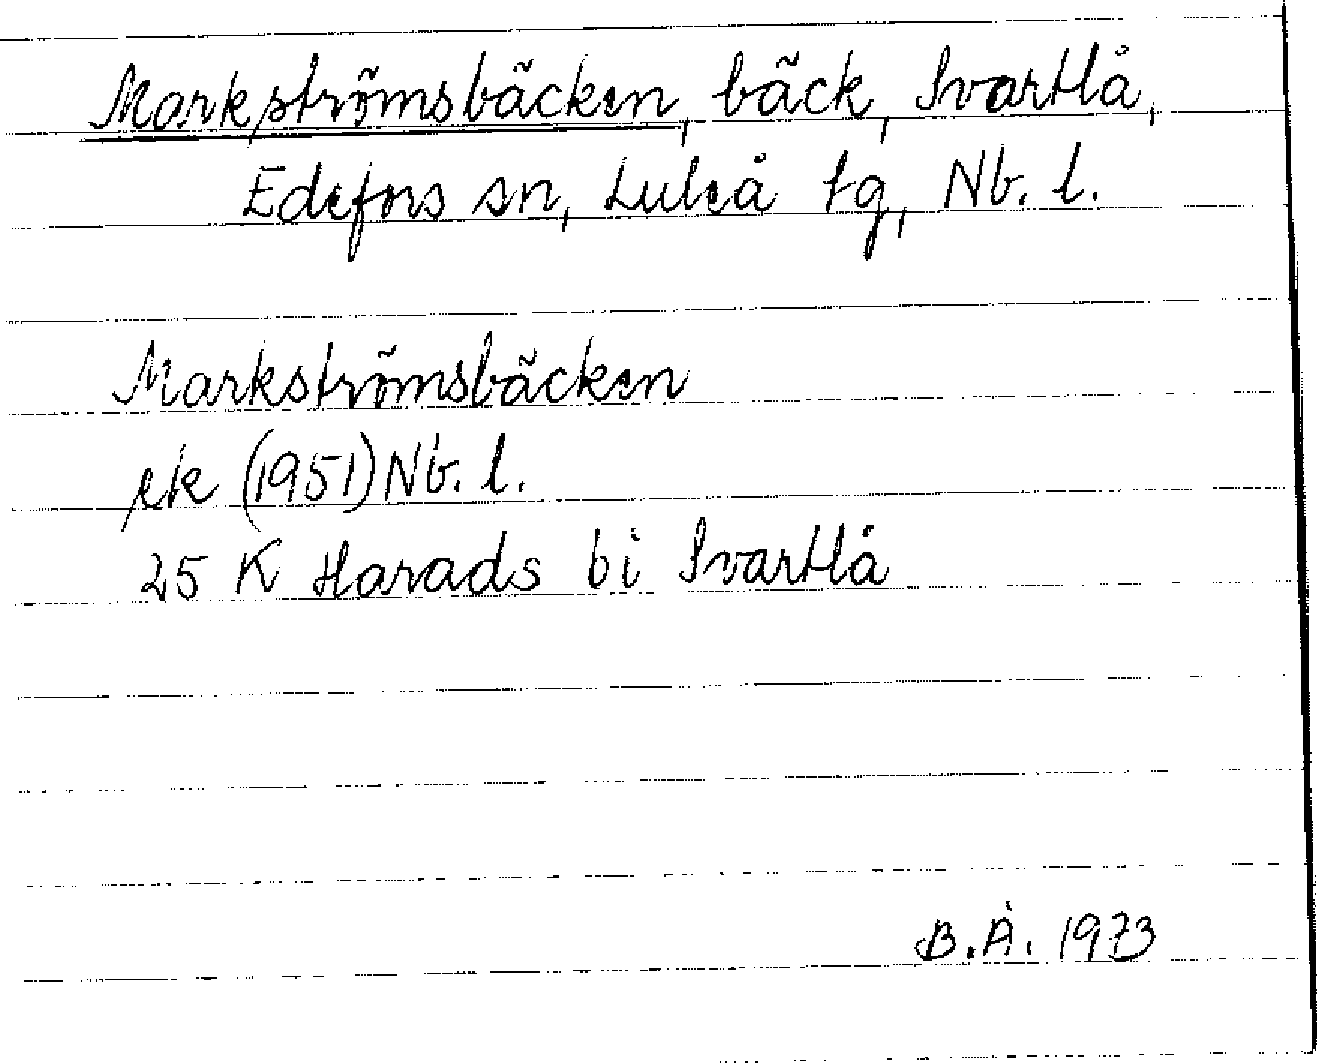 Markströmsbäcken, bäck, Svartlå,
Edefors sn, Luleå tg, Nb. l.
Markströmsbäcken
ek (1951) Nb. l.
25 K Harads bi Svartlå
B.Å. 1973